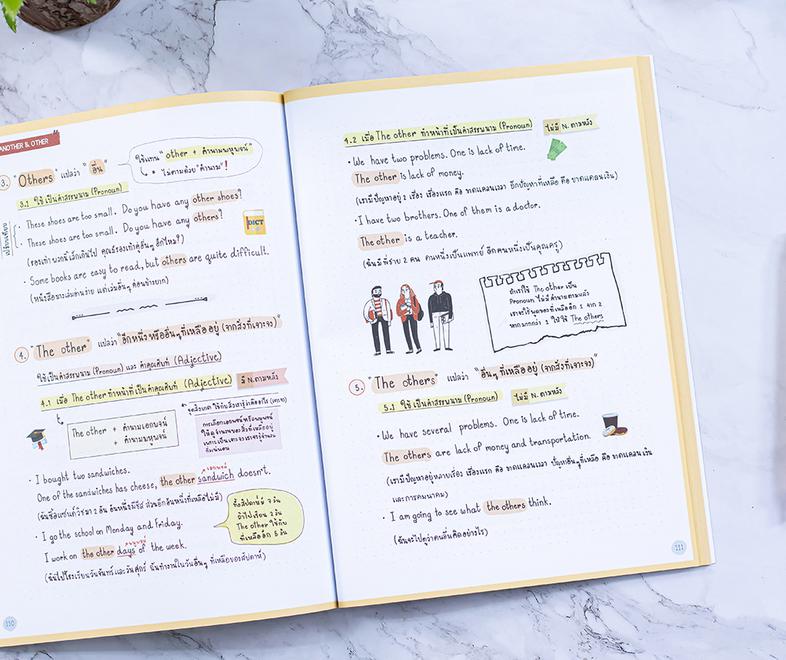 ANOTHER & OTHER
3. "Others" แปลว่า "อื่น"
ใช้แทน "other + คำนามพหูพจน์"
"ไม่ตามด้วย "คำนาม"!
3.1 ใช้เป็นคำสรรพนาม (Pronoun)
เปรียบเทียบ
These shoes are too small. Do you have any other shoes?
These shoes are too small. Do you have any others?
DICT
(รองเท้าพวกนี้เล็กเกินไป คุณมีรองเท้าคู่อื่นๆ อีกไหม?)
• Some books are easy to read, but others are quite difficult.
(หนังสือบางเล่มอ่านง่าย แต่เล่มอื่นๆ ค่อนข้างยาก)
4. "The other" แปลว่า "อีกหนึ่งหรืออื่นๆ ที่เหลืออยู่ (จากสิ่งที่เจาะจง)"
ใช้เป็นคำสรรพนาม (Pronoun) และ คำคุณศัพท์ (Adjective)
4.1 เมื่อ The other ทำหน้าที่เป็นคำคุณศัพท์ (Adjective)
มี N. ตามหลัง
The other + คำนามเอกพจน์
+ คำนามพหูพจน์
• I bought two sandwiches.
เอกพจน์
One of the sandwiches has cheese, the other sandwich doesn't.
(ฉันซื้อแซนด์วิชมา 2 อัน อันหนึ่งมีชีส ส่วนอีกอันหนึ่งที่เหลือไม่มี)
• I go the school on Monday and Friday.
พหูพจน์
I work on the other days of the week.
(ฉันไปโรงเรียนวันจันทร์และวันศุกร์ ฉันทำงานในวันอื่นๆ ที่เหลือของสัปดาห์)
ซึ่งสัปดาห์มี 7 วัน
ถ้าไปเรียน 2 วัน
The other ใช้กับ
ที่เหลืออีก 5 วัน
110
4.2 เมื่อ The other ทำหน้าที่เป็นคำสรรพนาม (Pronoun)
ไม่มี N. ตามหลัง
• We have two problems. One is lack of time.
The other is lack of money.
(เรามีปัญหาอยู่ 2 เรื่อง เรื่องแรก คือ ขาดแคลนเวลา อีกปัญหาที่เหลือ คือ ขาดแคลนเงิน)
• I have two brothers. One of them is a doctor.
The other is a teacher.
(ฉันมีพี่ชาย 2 คน คนหนึ่งเป็นแพทย์ อีกคนหนึ่งเป็นคุณครู)
ถ้าเราใช้ The other เป็น
Pronoun ไม่มีคำนามตามหลัง
เราจะใช้พูดของที่เหลืออีก 1 จาก 2
หากมากกว่า 1 ให้ใช้ The others
5. "The others" แปลว่า "อื่นๆ ที่เหลืออยู่ (จากสิ่งที่เจาะจง)"
5.1 ใช้เป็นคำสรรพนาม (Pronoun)
ไม่มี N. ตามหลัง
• We have several problems. One is lack of time.
The others are lack of money and transportation.
(เรามีปัญหาอยู่หลายเรื่อง เรื่องแรก คือ ขาดแคลนเวลา ปัญหาอื่นๆ ที่เหลือ คือ ขาดแคลนเงิน
และการคมนาคม)
• I am going to see what the others think.
(ฉันจะไปดูว่าคนอื่นคิดอย่างไร)
111